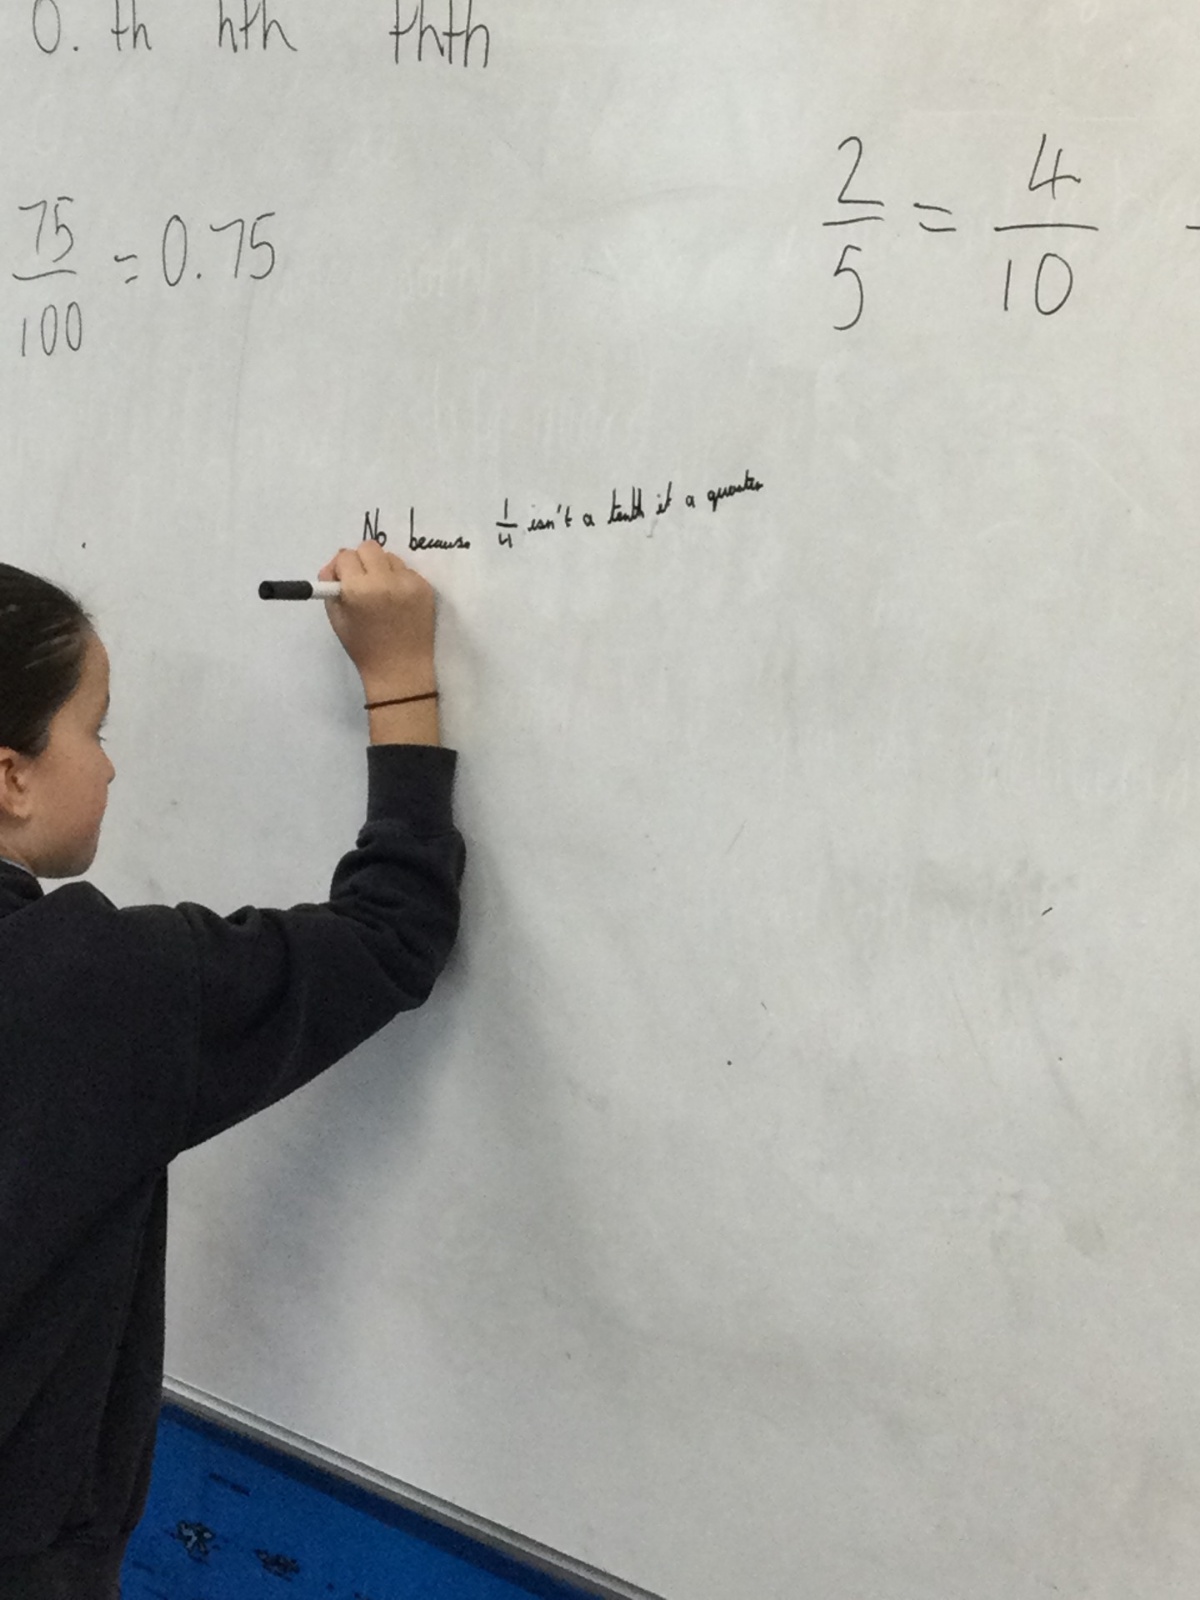 0. th hth thth
75/100 = 0.75
2/5 = 4/10
No because 1/4 isn't a tenth it a quarter